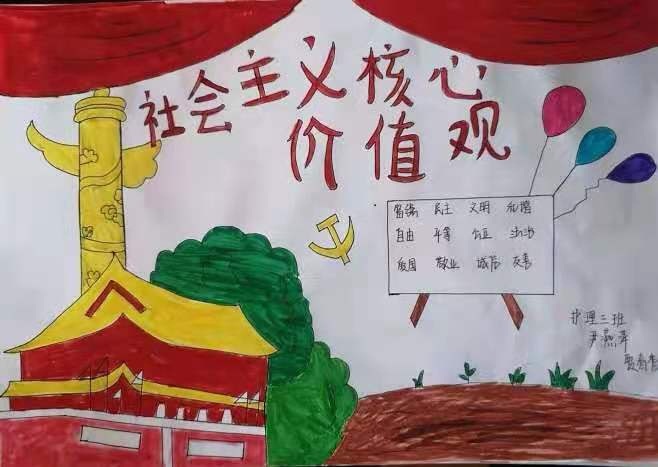 社会主义核心
价值观
富强 民主 文明 和谐
自由 平等 公正 法治
爱国 敬业 诚信 友善
护理三班